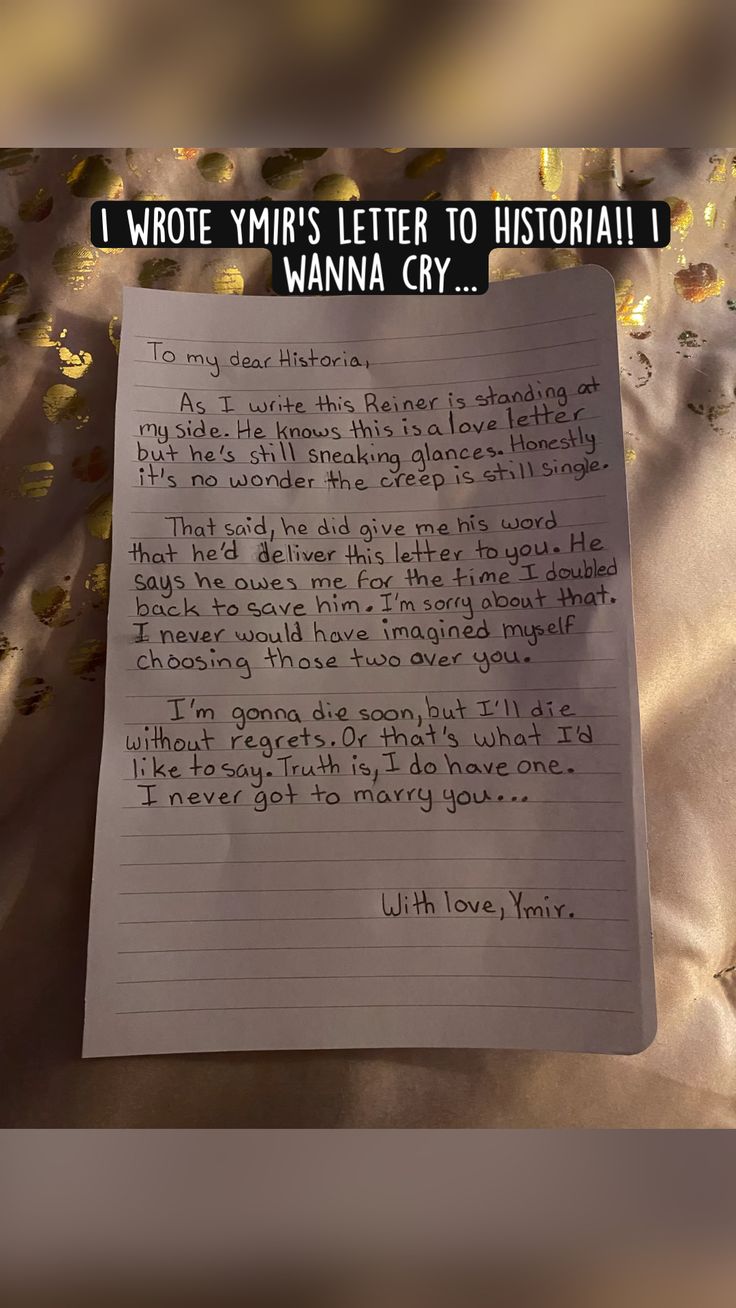 I WROTE YMIR'S LETTER TO HISTORIA!! I
WANNA CRY...
To my dear Historia,
As I write this Reiner is standing at
my side. He knows this is a love letter
but he's still sneaking glances. Honestly
it's no wonder the creep is still single.
That said, he did give me his word
that he'd deliver this letter to you. He
says he owes me for the time I doubled
back to save him. I'm sorry about that.
I never would have imagined myself
choosing those two over you.
I'm gonna die soon, but I'll die
without regrets. Or that's what I'd
like to say. Truth is, I do have one.
I never got to marry you...
With love, Ymir.